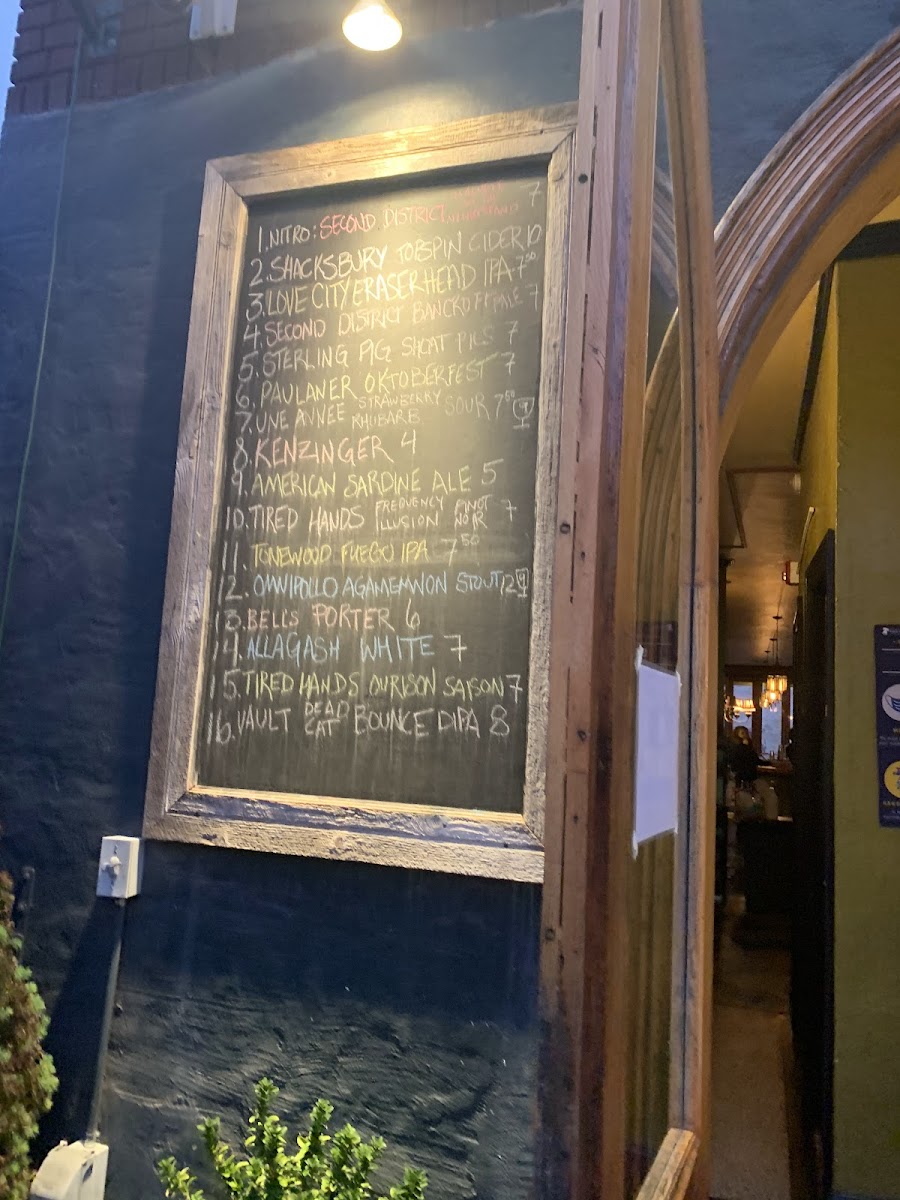 1. NITRO: SECOND DISTRICT 7
2. SHACKSBURY JOBSPIN CIDER 10
3. LOVE CITY ERASERHEAD IPA 7.50
4. SECOND DISTRICT BANCROFT PALE 7
5. STERLING PIG SHOAT PILS 7
6. PAULANER OKTOBERFEST 7
7. UNE ANNEE STRAWBERRY RHUBARB SOUR 7.50
8. KENZINGER 4
9. AMERICAN SARDINE ALE 5
10. TIRED HANDS FREQUENCY ILLUSION PINOT NOIR 7
11. TONEWOOD FUEGO IPA 7 50
12. OMNIPOLLO AGAMEMNON STOUT 12
13. BELL'S PORTER 6
14. ALLAGASH WHITE 7
15. TIRED HANDS OURISON SAISON 7
16. VAULT DEAD CAT BOUNCE DIPA 8